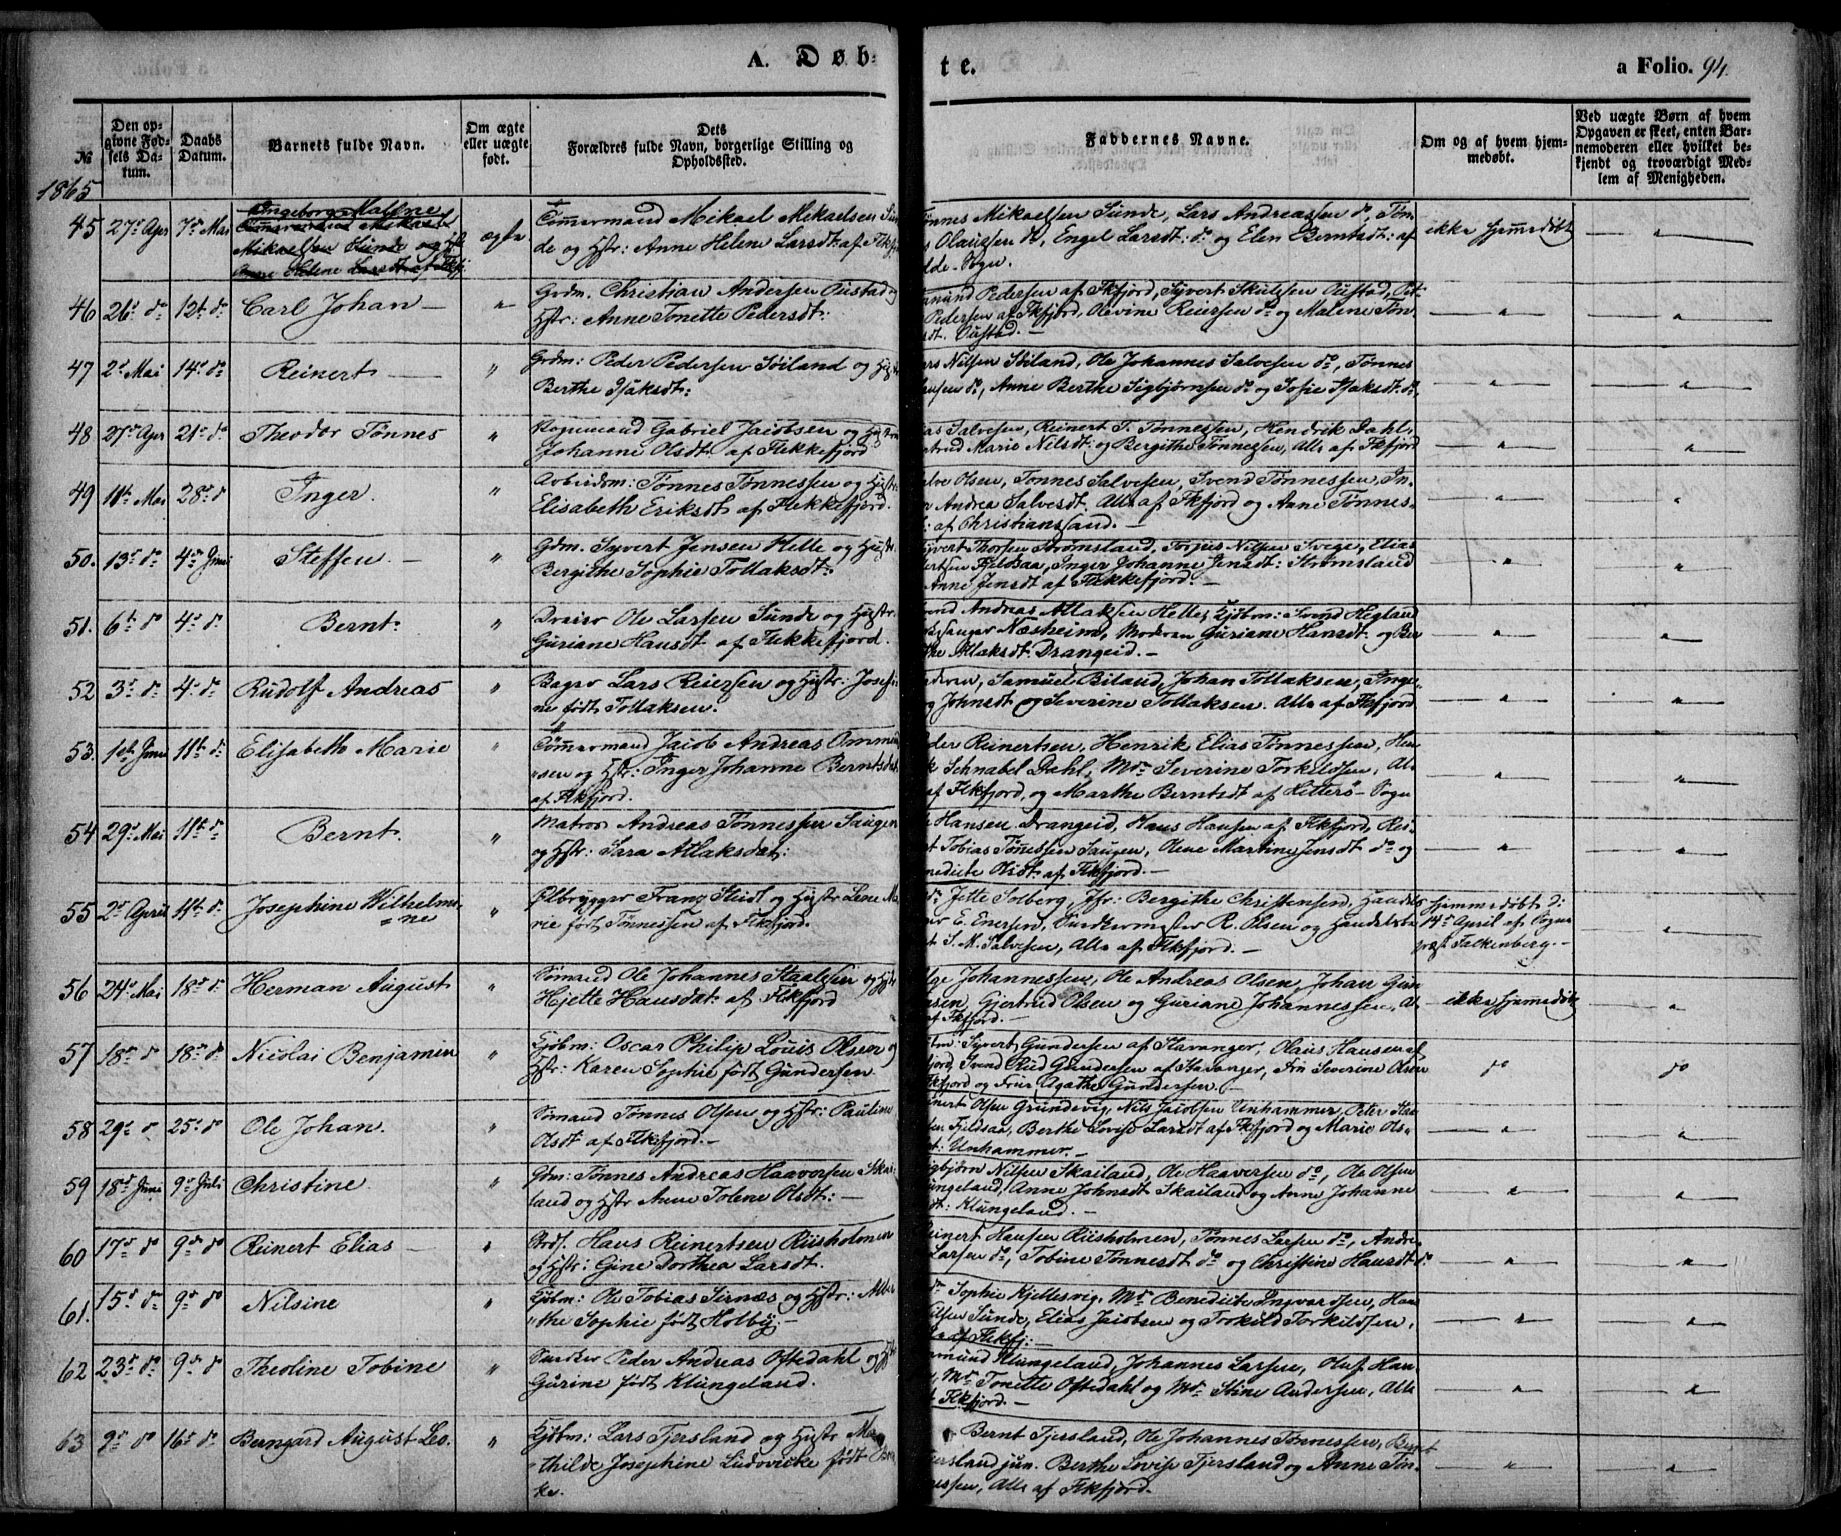 A. Døb-
te.
a Folio. 94.
№
Den op-
givne Fød-
sels Da-
tum.
Daabs
Datum.
Barnets fulde Navn.
Om ægte
eller uægte
født.
Dets
Forældres fulde Navn, borgerlige Stilling og
Opholdssted.
Faddernes Navne.
Om og af hvem hjem-
medøbt.
Ved uægte Børn af hvem
Opgaven er skeet, enten Bar-
nemoderen eller hvilket be-
kjendt og troværdigt Med-
lem af Menigheden.
1865
45 27de Apr 7de Mai
Ingeborg Malene
Tømmermand Mikael
Mikaelsen Sunde og Hstr
Anne Helene Larsdt af Fkfj.
ægte
Tømmermand Mikael Mikaelsen Sun
de og Hstr: Anne Helene Larsdt: af Fkfj
ønnes Mikaelsen Sunde, Lars Andreassen do, Tøn-
s Olaussen do, Engel Larsdt: do og Elen Berntsdt: af
lde-Sogn.
ikke hjemmedøbt
"
46 26de do 12te do Carl Johan "
Grdm. Christian Andersen Oustad og
Hstr: Anne Tonette Pedersdt:
mund Pedersen af Fkfjord, Syvert Skulesen Oustad, Pet-
Pedersen af Fkfjord, Olevine Reiersen do og Malene Tøn
sdt. Oustad. —
" "
47 2de Mai 14de do Reinert "
Grdm: Peder Pedersen Søiland og Hstr
Berthe Isaksdt:
ars Nilsen Søiland, Ole Johannes Salvesen do, Tønnes
nsen do, Anne Berthe Sigbjørnsen do og Sofie Isaksdt: do.
" "
48 27de Apr 21de do Theodor Tønnes "
Gabriel Jacobsen og Hstr
Johanne Olsdt af Flekkefjord
as Salvesen, Reinert T. Tønnessen, Hendrik Dahl,
rtrud Marie Nilsdt: og Bergithe Tønnessen, Alle af Fkfjord
" "
49 11te Mai 28de d Inger. "
Arbeidsm: Tønnes Tønnessen og Hstr
Elisabeth Eriksdt af Flekkefjord.
alve Olsen, Tønnes Salvesen, Svend Tønnessen, In-
Andrea Salvesdt. Alle af Fkfjord og Anne Tønnes-
t: af Christianssand. —
" "
50. 13de do 4de Juni Steffen. — "
Gdm. Syvert Jensen Helle og Hustr
Bergithe Sophie Tollaksdt:
yvert Thorsen Strømsland, Torjus Nilsen Svege, Elias
ertsen Fjeldsaa, Inger Johanne Jensdt: Strømsland
Anne Jensdt af Flekkefjord. —
" "
51. 6te do 4de do Bernt. "
Dreier Ole Larsen Sunde og Hustr.
Guriane Hansdt af Flekkefjord.
vend Andreas Atlaksen Helle, Kjøbm: Svend Hegland
Næsheim, Moderen Guriane Hansdt og Ber
the Atlaksdt: Drangeid. —
" "
52 3de do 4de do Rudolf Andreas "
Bager Lars Reiersen og Hustr: Josefi
ne født Tollaksen.
deren, Samuel Biland, Johan Tollaksen, Inge-
g Johnsdt og Severine Tollaksen. Alle af Fkfjord
" "
53. 1ste Juni 11te do Elisabeth Marie "
Tømmermand Jacob Andreas Ommun
sen og Hstr: Inger Johanne Berntsdat
af Fkfjord.
eder Reinertsen, Henrik Elias Tønnessen, Hen
k Schnabel Dahl, Mdm Severine Torkildsen, Al-
af Fkfjord, og Marthe Berntsdt af Hitterø-Sogn
" "
54 29de Mai 11te do Bernt. "
Matros Andreas Tønnessen Saugen
og Hstr: Sara Atlaksdat:
Hansen Drangeid, Hans Hansen af Fkfjord, Rei-
t Tobias Tønnessen Saugen, Olene Martine Jensdt do og
nedicte Olsdt af Fkfjord. —
" "
55 2de April 11te do Josephine Wilhelmi-
ne "
Ølbrygger Franz Steidt og Hustr Lene Ma
rie født Tønnessen af Fkfjord.
Jette Solberg, Jfr: Bergithe Christensen, Handels
E. Enersen, Snedkermester R. Olsen og Handelsbe
t S. M. Salvesen, Alle af Fkfjord. —
Hjemmedøbt d:
14de April af Sogne-
præst Falkenberg. —
"
56 24de Mai 18de do Herman August "
Sømand Ole Johannes Staalesen og Hstr
Hjette Hansdat: af Fkfjord
lge Johannessen, Ole Andreas Olsen, Johan Gun
sen, Gjertrud Olsen og Guriane Johannessen, Al
af Fkfjord. —
ikke hjemmedøbt
"
57 18de do 18de do Nicolai Benjamin "
Kjøbm: Oscar Philip Louis Olsen og
Hstr: Karen Sophie født Gundersen
bm: Syvert Gundersen af Stavanger, Olaus Hansen af
fjord, Svend Rud Gundersen af Stavanger, Fru Severine Olsen
Fkfjord og Frue Agathe Gundersen. —
do do
58 29de do 25de do Ole Johan. "
Sømand Tønnes Olsen og Hstr: Pauline
Olsdt af Fkfjord. —
inert Olsen Grundevig, Nils Jacobsen Unhammer, Peter Ste
en Fjeldsaa, Berthe Lovise Larsdt af Fkfjord og Marie Ols-
t: Unhammer. —
" "
59 18de Juni 9de Juli Christine "
Gdm: Tønnes Andreas Haaversen Skai
land og Hstr Anne Tolene Olsdt: —
igbjørn Nilsen Skailand, Ole Haaversen do, Ole Olsen
ungeland, Anne Johnsdt Skailand og Anne Johanne
dt: Klungeland. —
" "
60 17de do 9de do Reinert Elias — "
Hans Reinertsen Riisholmen
og Hstr: Gine Dorthea Larsdt.
einert Hansen Riisholmen, Tønnes Larsen do, Andre-
Larsen do, Tobine Tønnesdt do og Christine Hansdt do
" "
61. 15de do 9de do Nilsine "
Kjøbm: Ole Tobias Sirnæs og Hstr: Alber
the Sophie født Holby. —
Sophie Kjellesvig, Mdm Benedicte Ingvardsen, Han
Nilsen Sunde, Elias Jacobsen og Torkild Torkildsen,
le af Fkfj:
" "
62 23de do 9de do Theoline Tobine "
Snedker Peder Andreas Oftedahl og Hstr
Gurine født Klungeland.
mund Klungeland, Johannes Larsen, Oluf Han-
, Mdm Tonette Oftedahl og Mdm Stine Andersen, Alle
f Fkfjord. —
" "
63 9de do 16de do Berngard August Leo. "
Kjøbm: Lars Tjersland og Hustr Ma
thilde Josephine Ludovicke født Bee
ke.
Bernt Tjersland, Ole Johannes Tønnessen, Bernt
jersland jun. Berthe Lovise Tjersland og Anne Tøn-
nessen, Alle af Fkfjord.
" "